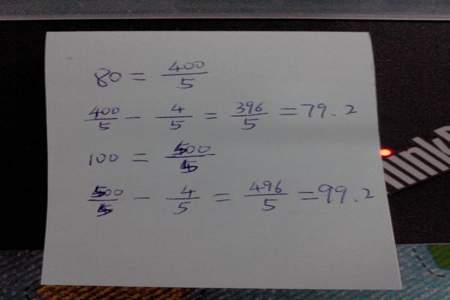 80 = 400/5
400/5 - 4/5 = 396/5 = 79.2
100 = 500/5
500/5 - 4/5 = 496/5 = 99.2
hinkP